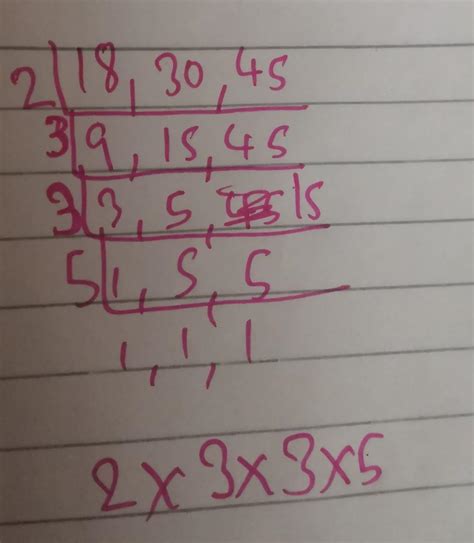 2 | 18, 30, 45
3 | 9, 15, 45
3 | 3, 5, 15
5 | 1, 5, 5
1, 1, 1
2 x 3 x 3 x 5